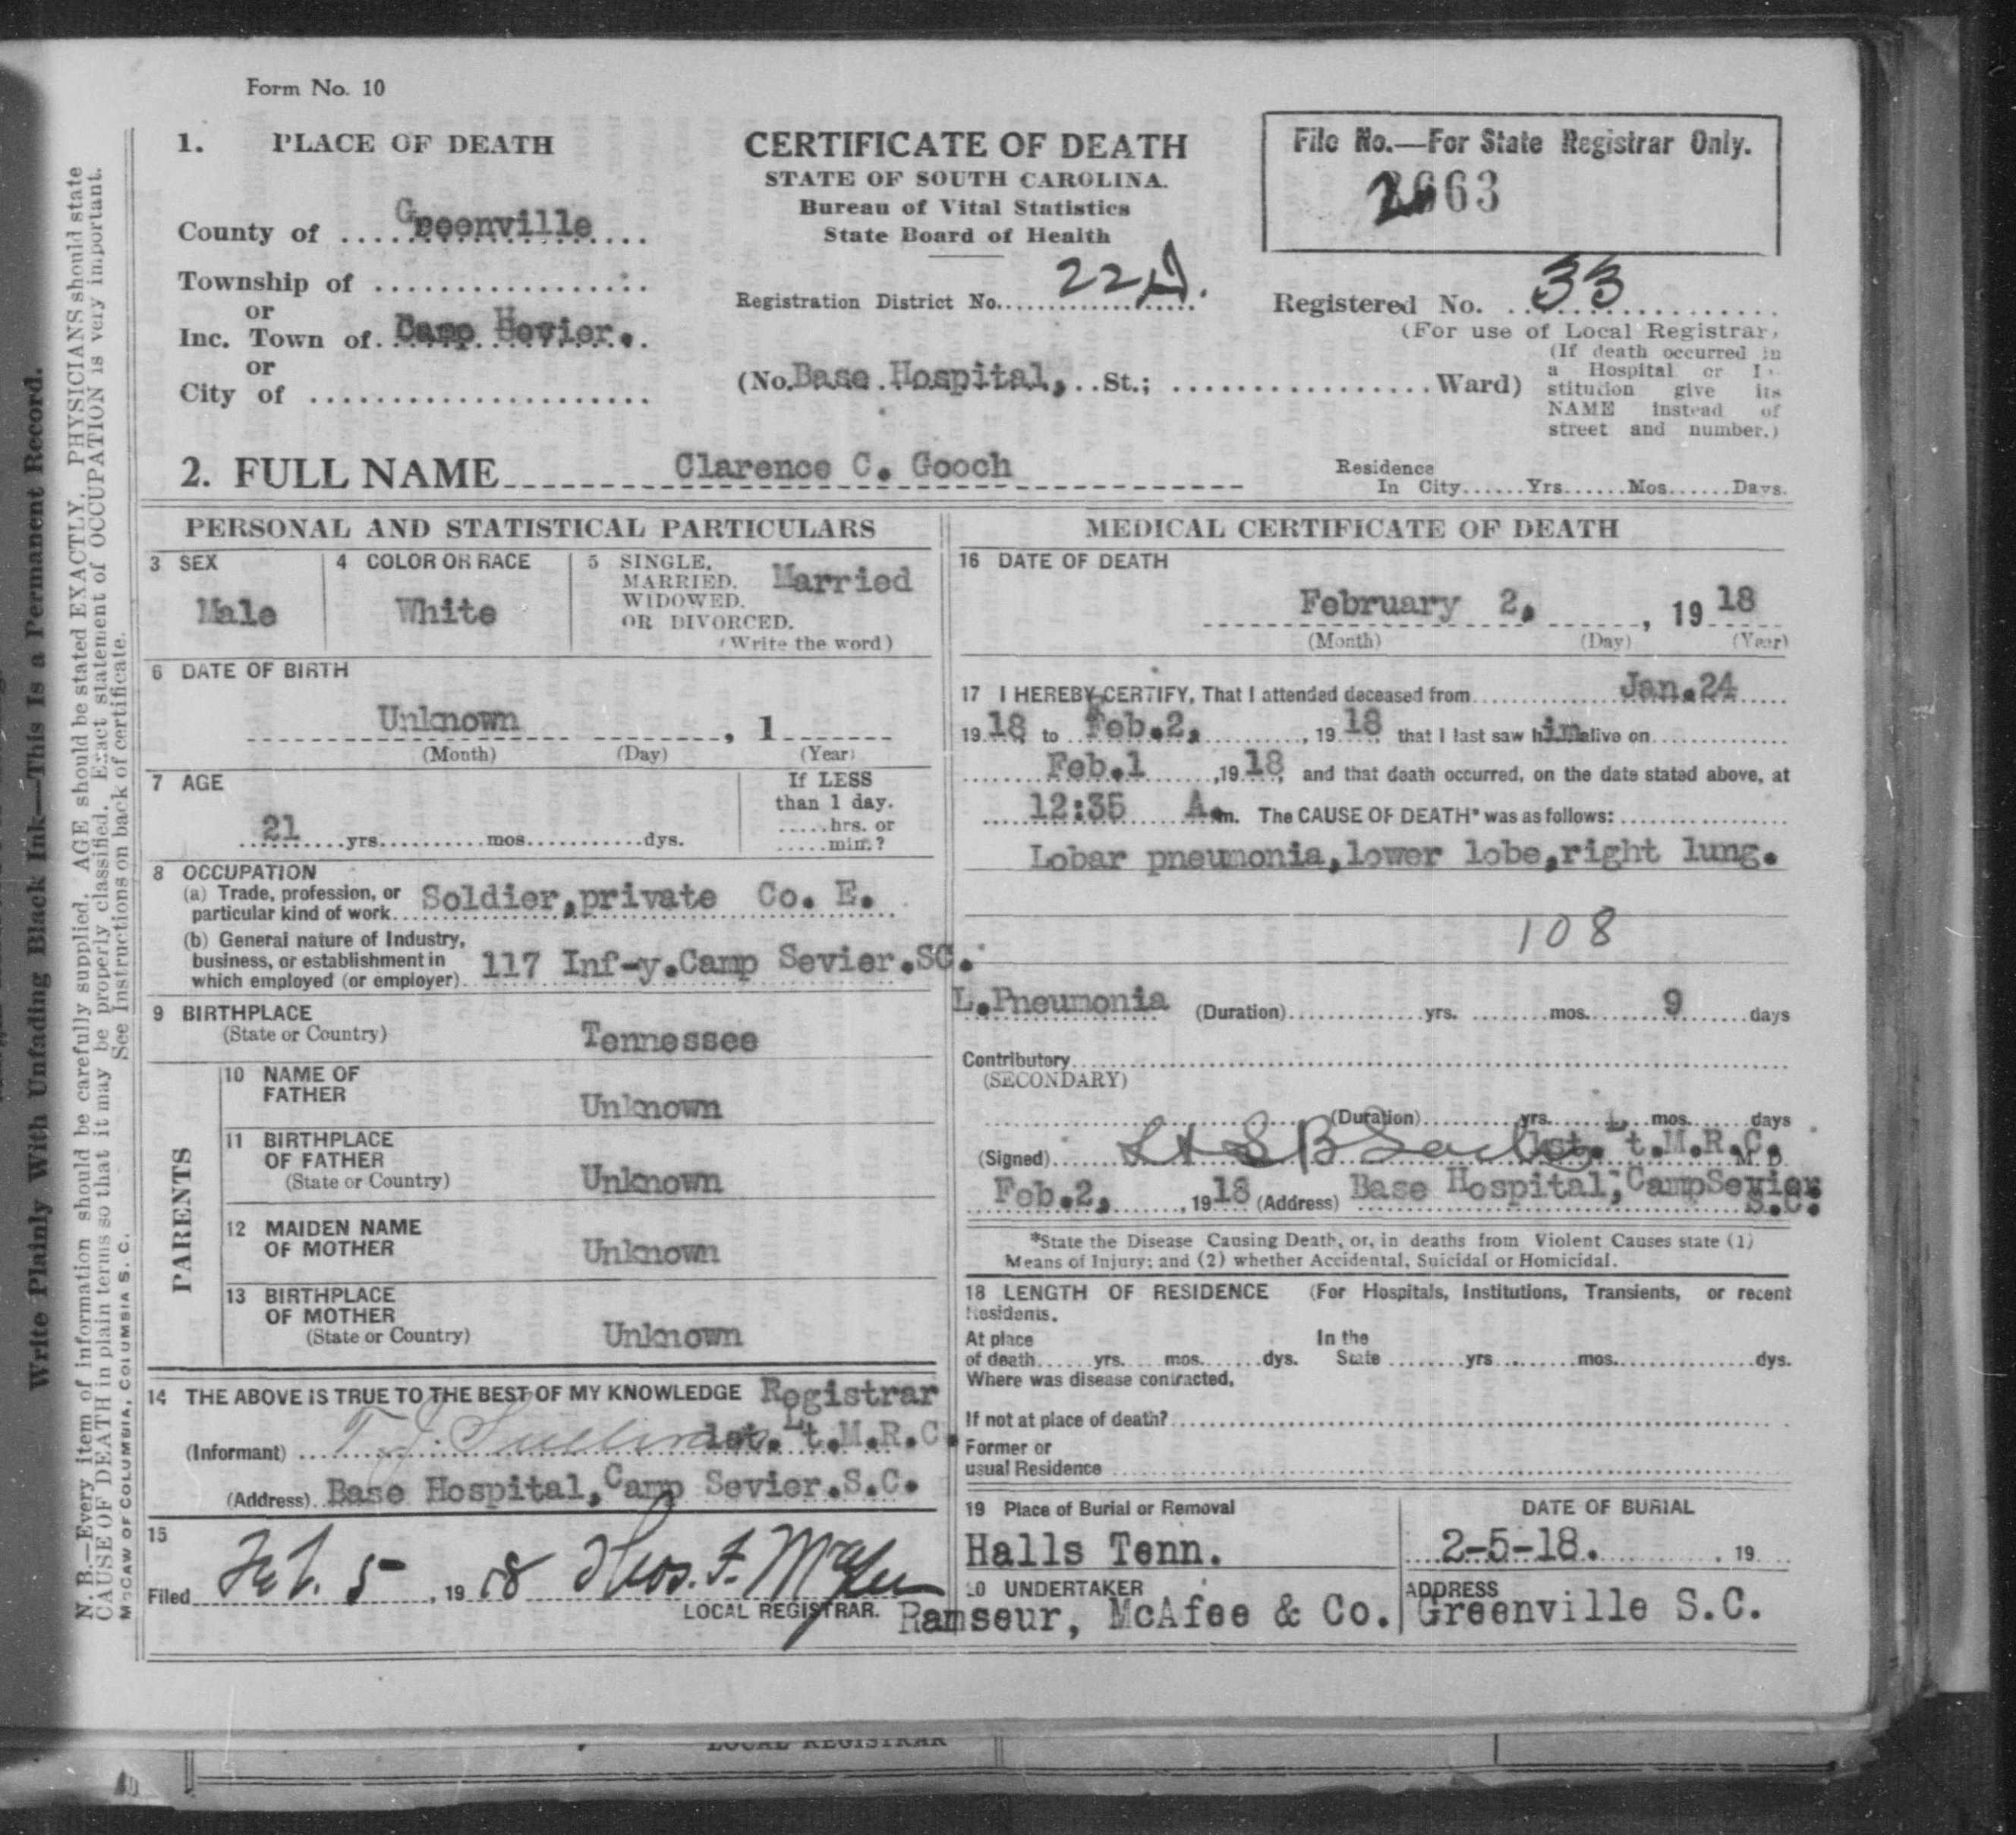 Form No. 10
1. PLACE OF DEATH
County of Greenville
Township of
or
Inc. Town of Camp Sevier.
or
City of
CERTIFICATE OF DEATH
STATE OF SOUTH CAROLINA.
Bureau of Vital Statistics
State Board of Health
Registration District No. 22
(No. Base Hospital, St.; Ward)
File No.—For State Registrar Only.
63
Registered No. 33
(For use of Local Registrar,
(If death occurred in
a Hospital or In-
stitution give its
NAME instead of
street and number.)
2. FULL NAME Clarence C. Gooch
Residence
In City Yrs Mos Days.
PERSONAL AND STATISTICAL PARTICULARS
3 SEX
Male
4 COLOR OR RACE
White
5 SINGLE, MARRIED, WIDOWED, OR DIVORCED.
Married
(Write the word)
6 DATE OF BIRTH
Unknown , 1
(Month) (Day) (Year)
7 AGE
21 yrs. mos. dys.
If LESS
than 1 day.
hrs. or
min.?
8 OCCUPATION
(a) Trade, profession, or
particular kind of work Soldier, private Co. E.
(b) General nature of Industry,
business, or establishment in
which employed (or employer) 117 Inf-y. Camp Sevier. SC.
9 BIRTHPLACE
(State or Country) Tennessee
PARENTS
10 NAME OF
FATHER Unknown
11 BIRTHPLACE
OF FATHER
(State or Country) Unknown
12 MAIDEN NAME
OF MOTHER Unknown
13 BIRTHPLACE
OF MOTHER
(State or Country) Unknown
14 THE ABOVE IS TRUE TO THE BEST OF MY KNOWLEDGE Registrar
(Informant) T. J. Sullivan 1st. Lt. M.R.C.
(Address) Base Hospital, Camp Sevier. S.C.
15
Filed Feb. 5, 1918 Thos. F. McAfee
LOCAL REGISTRAR.
MEDICAL CERTIFICATE OF DEATH
16 DATE OF DEATH
February 2, , 1918
(Month) (Day) (Year)
17 I HEREBY CERTIFY, That I attended deceased from Jan. 24
1918 to Feb. 2, , 1918 that I last saw him alive on
Feb. 1 , 1918, and that death occurred, on the date stated above, at
12:35 A. m. The CAUSE OF DEATH* was as follows:
Lobar pneumonia, lower lobe, right lung.
108
L. Pneumonia (Duration) yrs. mos. 9 days
Contributory
(SECONDARY)
(Duration) yrs. mos. days
(Signed) 1st. Lt. M.R.C. M D
Feb. 2, , 1918 (Address) Base Hospital, Camp Sevier
S.C.
*State the Disease Causing Death, or, in deaths from Violent Causes state (1)
Means of Injury; and (2) whether Accidental, Suicidal or Homicidal.
18 LENGTH OF RESIDENCE (For Hospitals, Institutions, Transients, or recent
Residents.
At place In the
of death yrs. mos. dys. State yrs. mos. dys.
Where was disease contracted,
If not at place of death?
Former or
usual Residence
19 Place of Burial or Removal
Halls Tenn.
DATE OF BURIAL
2-5-18. , 19
20 UNDERTAKER
Ramseur, McAfee & Co.
ADDRESS
Greenville S.C.
Write Plainly With Unfading Black Ink—This Is a Permanent Record.
N. B.—Every item of information should be carefully supplied. AGE should be stated EXACTLY. PHYSICIANS should state
CAUSE OF DEATH in plain terms so that it may be properly classified. Exact statement of OCCUPATION is very important.
See Instructions on back of certificate.
McCAW OF COLUMBIA, COLUMBIA S. C.
LOCAL REGISTRAR